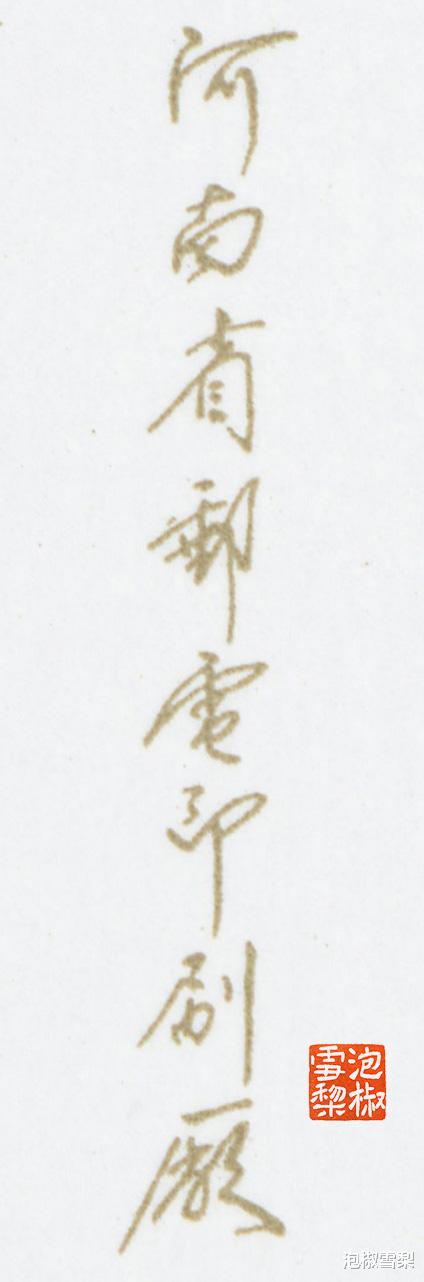 河南省郵電印刷厰
泡椒
雪梨
泡椒雪梨